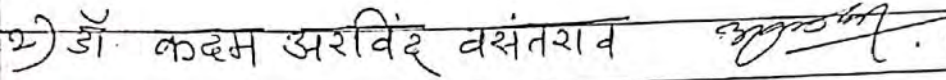 २) डॉ. कदम अरविंद वसंतराव